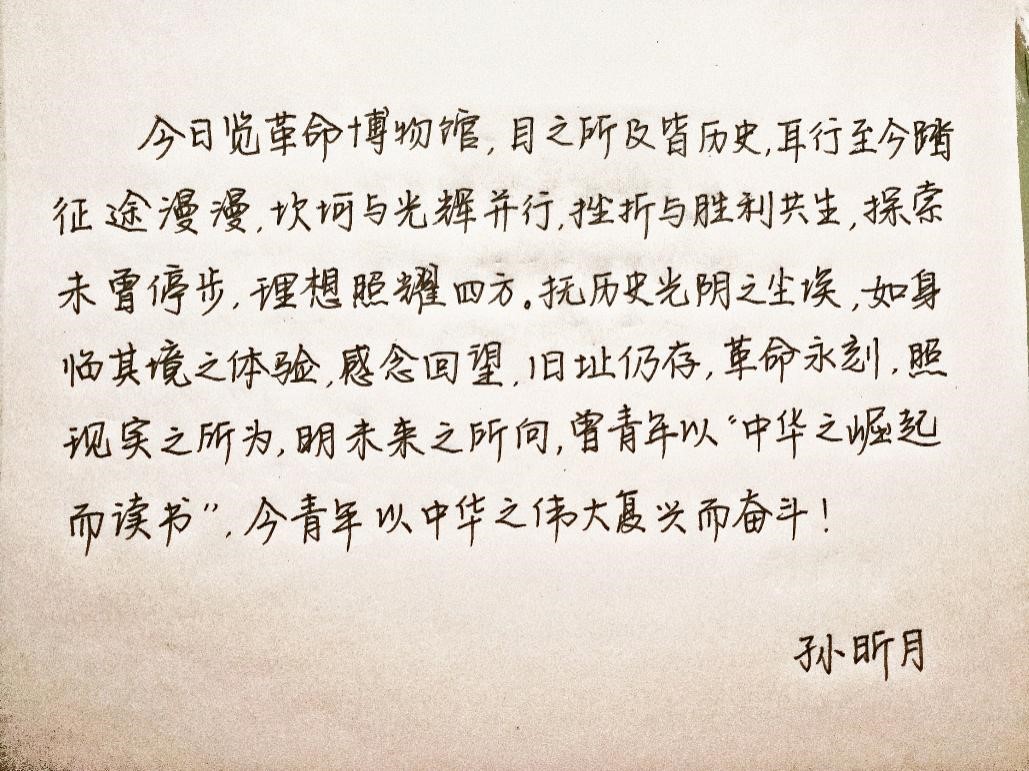 今日览革命博物馆,目之所及皆历史,耳行至今踏
征途漫漫,坎坷与光辉并行,挫折与胜利共生,探索
未曾停步,理想照耀四方。抚历史光阴之尘埃,如身
临其境之体验,感念回望,旧址仍存,革命永刻,照
现实之所为,明未来之所向,曾青年以“中华之崛起
而读书”,今青年以中华之伟大复兴而奋斗!
孙昕月